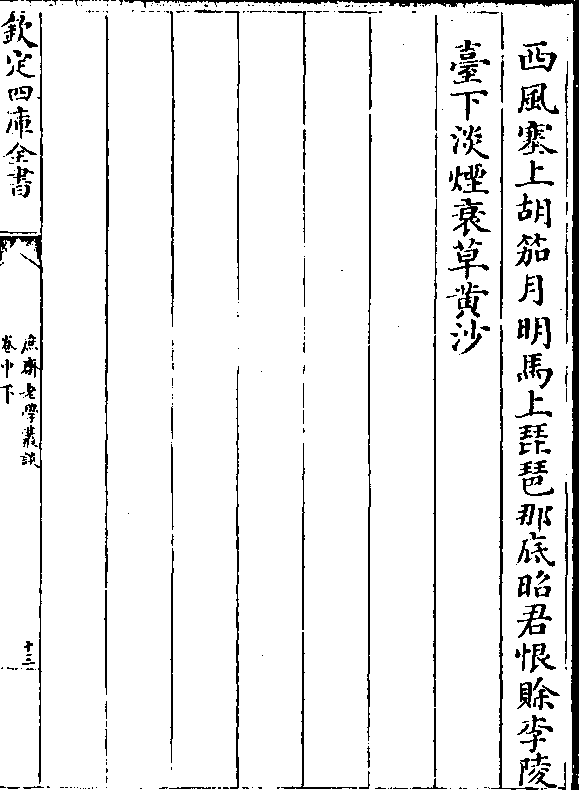 西風塞上胡笳月明馬上琵琶那底昭君恨賖李陵
臺下淡煙衰草黄沙
欽定四庫全書
庶齋老學叢談
卷中下
十三